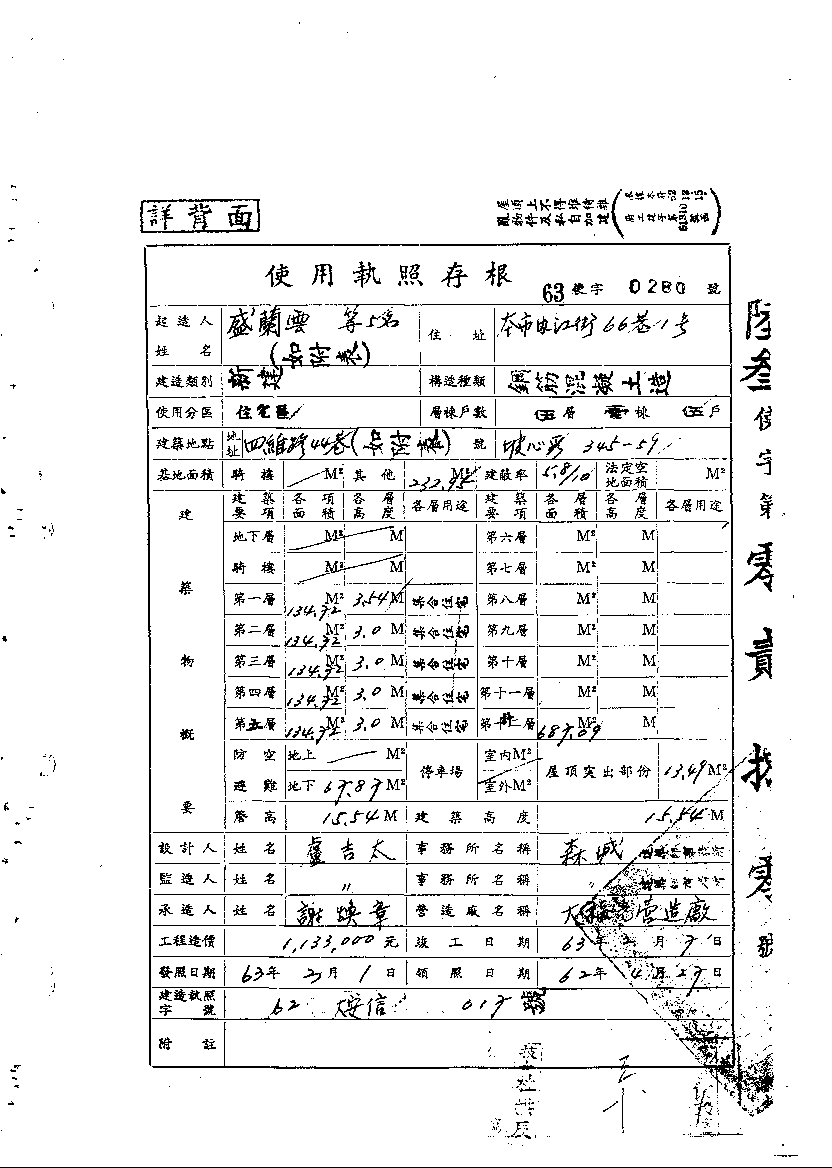 詳背面
屋頂上不得堆積雜
物件及私自加建
使用執照存根
63 使字 0280 號
起造人姓名 盛蘭雲 等5名 (如附表) 住址 本市曲江街66巷1号
建造類別 新建 構造種類 鋼筋混凝土造
使用分區 住宅區 層棟戶數 伍層 壹棟 伍戶
建築地點 地址 四維路44巷( ) 號 坡心段 345-59
基地面積 騎樓 M² 其他 232.95 M² 建蔽率 5.8/10 法定空地面積 M²
建築物概要
建築要項 各項面積 各層高度 各層用途 建築要項 各層面積 各層高度 各層用途
地下層 M² M 第六層 M² M
騎樓 M² M 第七層 M² M
第一層 134.92 M² 3.54 M 集合住宅 第八層 M² M
第二層 134.92 M² 3.0 M 集合住宅 第九層 M² M
第三層 134.92 M² 3.0 M 集合住宅 第十層 M² M
第四層 134.92 M² 3.0 M 集合住宅 第十一層 M² M
第五層 134.92 M² 3.0 M 集合住宅 第十 層 M² M
防空避難 地上 M² 停車場 室內M² 屋頂突出部份 13.49 M²
地下 67.87 M² 室外M²
簷高 15.54 M 建築高度 15.54 M
設計人 姓名 盧吉太 事務所名稱 森城
監造人 姓名 〃 事務所名稱
承造人 姓名 謝煥章 營造廠名稱 營造廠
工程造價 1,133,000 元 竣工日期 63年2月7日
發照日期 63年 月1日 領照日期 62年4月27日
建造執照字號 62 大安信 017 號
附註
陸叁使字第零貳捌零號